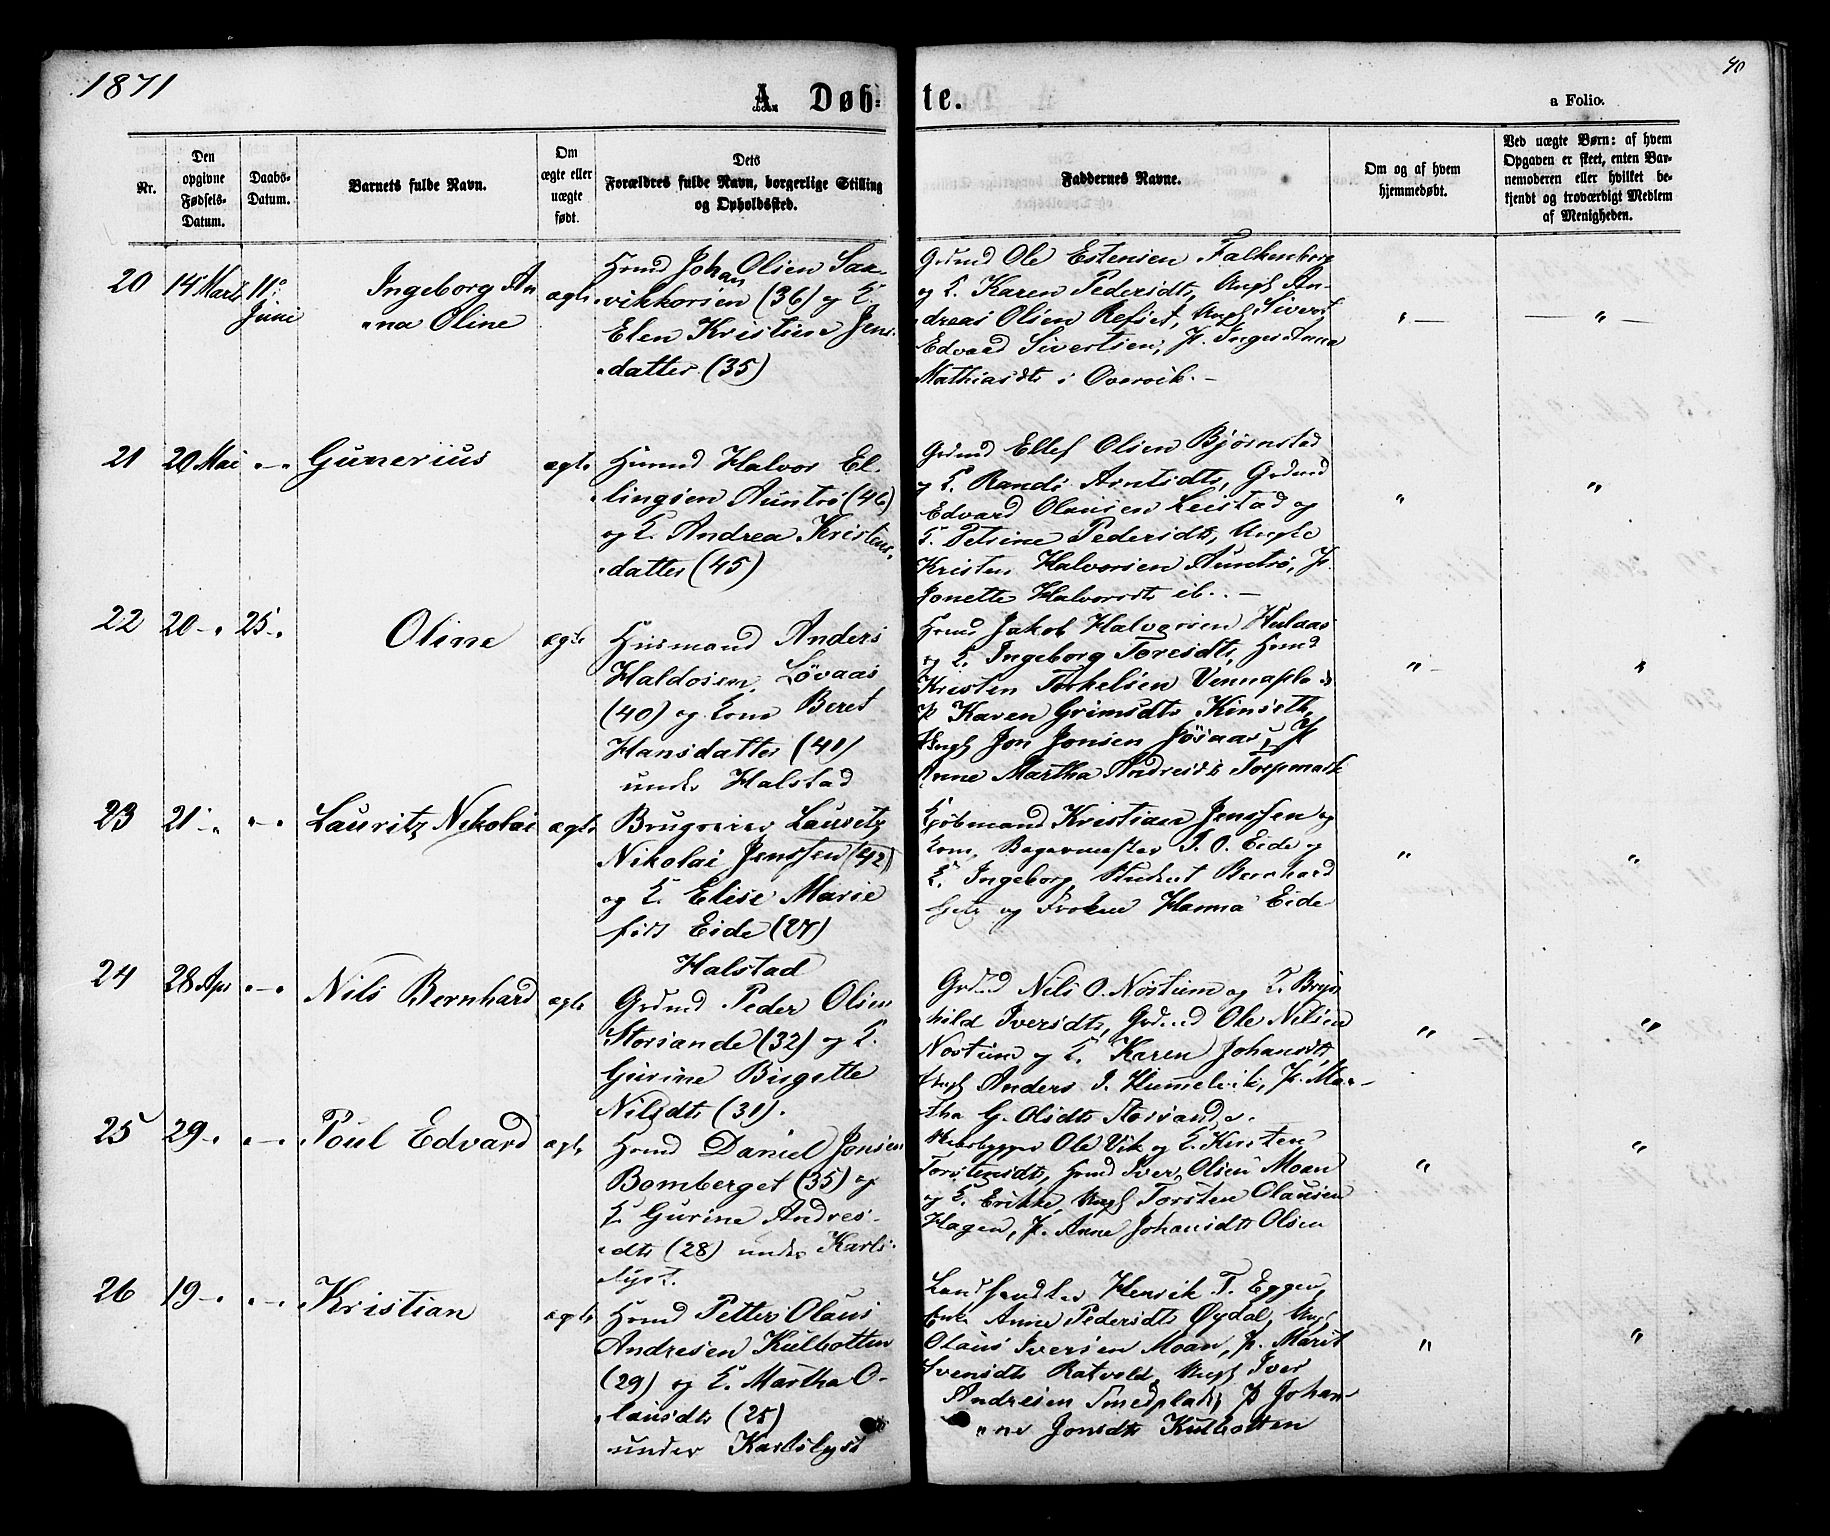 1871
40
A. Døbte.
a Folio.
Nr.
Den opgivne Fødsels-Datum.
Daabs-Datum.
Barnets fulde Navn.
Om ægte eller uægte født.
Dets Forældres fulde Navn, borgerlige Stilling og Opholdssted.
Faddernes Navne.
Om og af hvem hjemmedøbt.
Ved uægte Børn: af hvem Opgaven er skeet, enten Barnemoderen eller hvilket bekjendt og troværdigt Medlem af Menigheden.
20
14 Marts
11 Juni
Ingeborg An
"na Oline
ægte
Hmd Johan Olsen Sax-
vikkorsen (36) og K.
Elen Kristine Jens
datter (35)
Grdmd Ole Estensen Falkenborg
og K. Karen Pedersdt, Ungk An-
dreas Olsen Refset, Ungk Sivert
Edvard Sivertsen, P. Inger Anna
Mathiasdt i Overvik.-
"-
- " -
21
20 Mai
"-"
Gunerius
ægte
Husmd Halvor El-
lingsen Auntrø (46)
og K. Andrea Kristens
datter (45)
Grdmd Ellef Olsen Bjørnstad
og K. Randi Arntsdt, Grdmd
Edvard Olausen Leistad og
K. Petrine Pedersdt, Ungk
Kristen Halvorsen Auntrø, P.
Jonette Halvorsdt ib..-
"
"
22
20-"
25-"
Oline
ægte
Husmand Anders
Haldosen Løvaas
(40) og Kone Beret
Hansdatter (41)
under Halstad
Hmd Jakob Halvorsen Hulaas
og K. Ingeborg Toresdt, Hmd
Kristen Torkelsen Vennapl
P Karen Grimsdt Kinseth,
Ungk Jon Jonsen Jøsaas, P
Anne Martha Andresdt Torpmark
"-
"
23
21-"
"-"
Lauritz Nikolai
ægte
Brugseier Lauritz
Nikolai Jenssen (42)
og K. Elise Marie
født Eide (27)
Halstad
Kjøbmand Kristian Jenssen og
Kone, Bagermester J. O. Eide og
K. Ingeborg, Student Bernhard
Getz og Frøken Hanna Eide
"
"
24
28 Apr
"-"
Nils Bernhard
ægte
Grdmd Peder Olsen
Storsande (32) og K.
Gurine Birgette
Nilsdt (31).
Grdmd Nils O. Nostum og K. Bryn
hild Iversdt, Grdmd Ole Nilsen
Nostum og K. Karen Johansdt,
Ungk Anders J. Hummelvik, P. Mar-
tha G. Olsdt Storsande.
"
"
25
29-"
"-"
Poul Edvard
ægte
Hmd Daniel Jonsen
Bomberget (35) og
K Gurine Andres-
"dt (28) under Karls-
lyst.
Ole Vik og K. Kirsten
Torstensdt, Hmd Iver Olsen Moan
og K. Erikke, Ungk Torsten Olausen
Hagen, P. Anne Johansdt Olsen
"
"
26
19-"
"-"
Kristian
ægte
Hmd Petter Olaus
Andresen Kulbotten
(29) og K. Martha O-
lausdt (25)
under Karlslyst
Landhandler Henrik T. Eggen,
Enke Anne Pedersdt Øydal, Ungk
Olaus Iversen Moan, P. Marit
Svensdt Ratvold, Ungk Iver
Andresen Smedplads, P Johan-
"ne Jonsdt Kulbotten
"
"